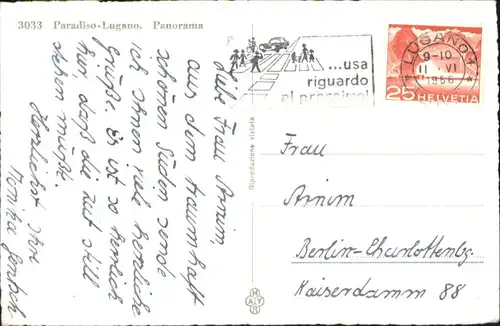 3033 Paradiso-Lugano. Panorama
...usa
riguardo
al prossimo!
LUGANO 1
9-10
11. VI
1956
25 HELVETIA
Riproduzione vietata
Liebe Frau Arnim,
aus dem traumhaft
schönen Süden sende
ich Ihnen viele herzliche
Grüße. Es ist so herrlich
hier, daß die Zeit still
stehen müßte.
Herzlichst Ihre
Monika
Frau
Arnim
Berlin-Charlottenbg.
Kaiserdamm 88